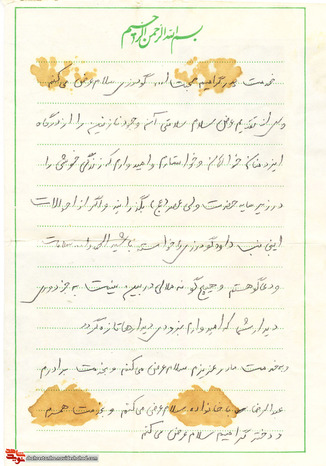 بسم الله الرحمن الرحیم
خدمت پدر گرامیم حجت ا... گودرزی سلام عرض می‌کنم
و پس از تقدیم عرض سلام سلامتی آن وجود نازنین را از درگاه
ایزد منان خواهان و خواستارم و امیدوارم که زندگی خوشی را
در زیر سایه حضرت ولی عصر (عج) بگذرانید و اگر از احوالات
این جانب داود گودرزی را خواسته باشید الحمدا... سلامت
و دعاگو هستم و هیچ گونه ملالی در بین نیست به جز دوری
دیدار شما که امیدوارم بزودی دیدارها تازه گردد
و خدمت مادر عزیزم سلام عرض می‌کنم و بخدمت برادرم
عبدالرضا با خانواده سلام عرض می‌کنم و بخدمت همسرم
و دختر گرامیم سلام عرض می‌کنم